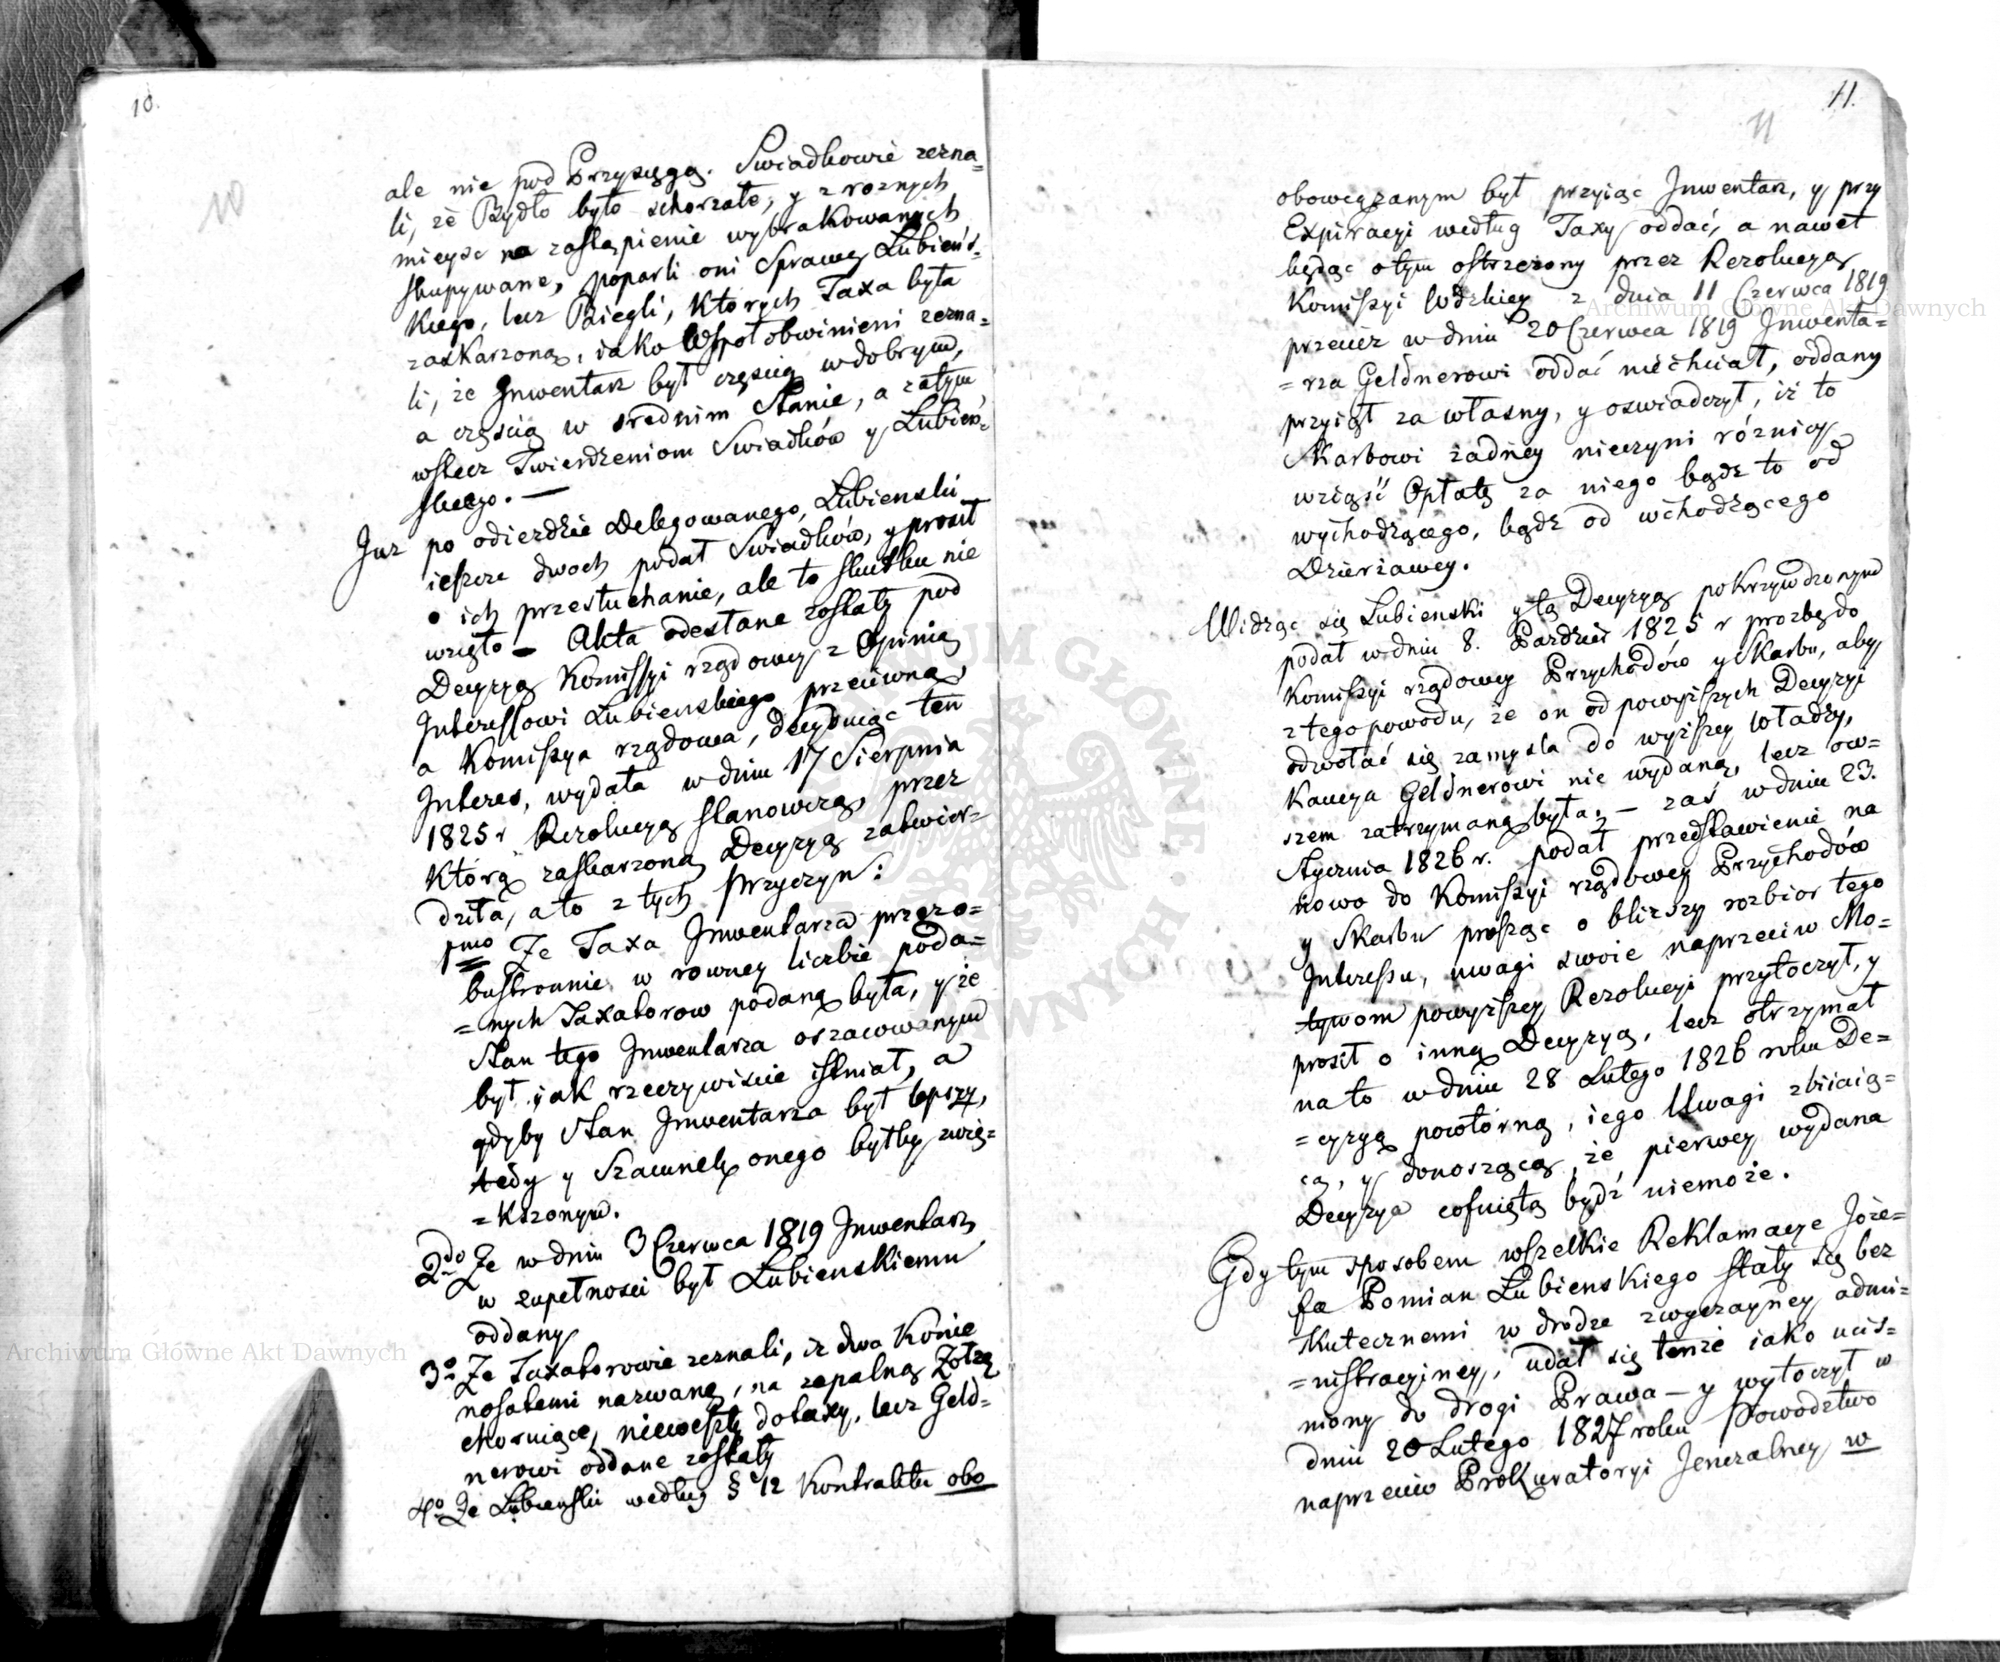 10.
10
ale nie pod Przysięgą. Swiadkowie zezna=
li, że Bydło było schorzałe, y z roznych
mieysc na zastąpienie wybrakowanych
skupywane, poparli oni Sprawę Lubieńs=
kiego, lecz Biegli, których Taxa była
zaskarzoną, iako Wspołobwinieni zezna=
li, że Inwentarz był częścią w dobrym,
a częścią w srednim Stanie, a zatym
wstecz Twierdzeniom Swiadków y Lubień=
skiego. —
Już po odiezdzie Delegowanego, Lubienski
ieszcze dwoch podał Swiadków, y prosił
o ich przesłuchanie, ale to skutku nie
wzięło — Akta odesłane zostały pod
Decyzyą Kommissyi rządowey z Opinią
Interessowi Lubienskiego przeciwną,
a Komissya rządowa, decyduiąc ten
Interes, wydała w dniu 17 Sierpnia
1825 r Rezolucyą stanowczą, przez
którą zaskarzoną Decyzyą zatwier=
dziła, a to z tych przyczyn:
1mo Ze Taxa Inwentarza przez o=
bustronnie w rowney liczbie poda=
=nych Taxatorow podaną była, y że
Stan tego Inwentarza oszacowanym
był iak rzeczywiscie istniał, a
gdyby Stan Inwentarza był lepszy,
tedy y Szacunek onego byłby zwię=
=kszonym.
2do Ze w dniu 3 Czerwca 1819 Inwentarz
w zupełnosci był Lubienskiemu
oddany
3o Ze Taxatorowie zeznali, iz dwa Konie
nosatemi nazwane, na zapalną Zołzę
choruiące, nieweszły do taxy, lecz Geld=
nerowi oddane zostały
4o Ze Lubienski według § 12 Kontraktu obo
11.
11
obowiązanym był przyiąc Inwentarz, y przy
Expiracyi według Taxy oddać, a nawet
będąc o tym ostrzeżony przez Rezolucyą
Komissyi Wdzkiey z dnia 11 Czerwca 1819
przecież w dniu 20 Czerwca 1819 Inwenta=
=rza Geldnerowi oddać niechciał, oddany
przyiął za własny, y oswiadczył, iż to
Skarbowi żadney nieczyni różnicy
wziąść Opłatę za niego bądz to od
wychodzącego, bądz od wchodzącego
Dzierżawcy.
Widząc się Lubienski y tą Decyzyą pokrzywdzonym
podał w dniu 8. Pazdzier 1825 r prozbę do
Komissyi rządowey Przychodów y Skarbu, aby
z tego powodu, że on od powyższych Decyzyi
odwołać się zamysla do wyższey Władzy,
Kaucya Geldnerowi nie wydaną, lecz ow=
szem zatrzymaną była; — zaś w dniu 23.
Stycznia 1826 r. podał przedstawienie na
nowo do Komissyi rządowey Przychodów
y Skarbu prosząc o bliższy rozbior tego
Interessu, uwagi swoie naprzeciw Mo=
tywom powyższey Rezolucyi przytoczył, y
prosił o inną Decyzyą, lecz otrzymał
na to w dniu 28 Lutego 1826 roku De=
=cyzyą powtórną, iego Uwagi zbiiaią=
cą, y donoszącą, że pierwey wydana
Decyzya cofnięta bydź niemoże.
Gdy tym sposobem wszelkie Reklamacye Józe=
fa Pomian Lubienskiego stały się bez
skutecznemi w drodze zwyczayney admi=
=nistracyiney, udał się tenże iako ucis=
niony do drogi Prawa — y wytoczył w
dniu 20 Lutego 1827 roku Powodztwo
naprzeciw Prokuratoryi Jeneralney w
Archiwum Główne Akt Dawnych
Archiwum Główne Akt Dawnych